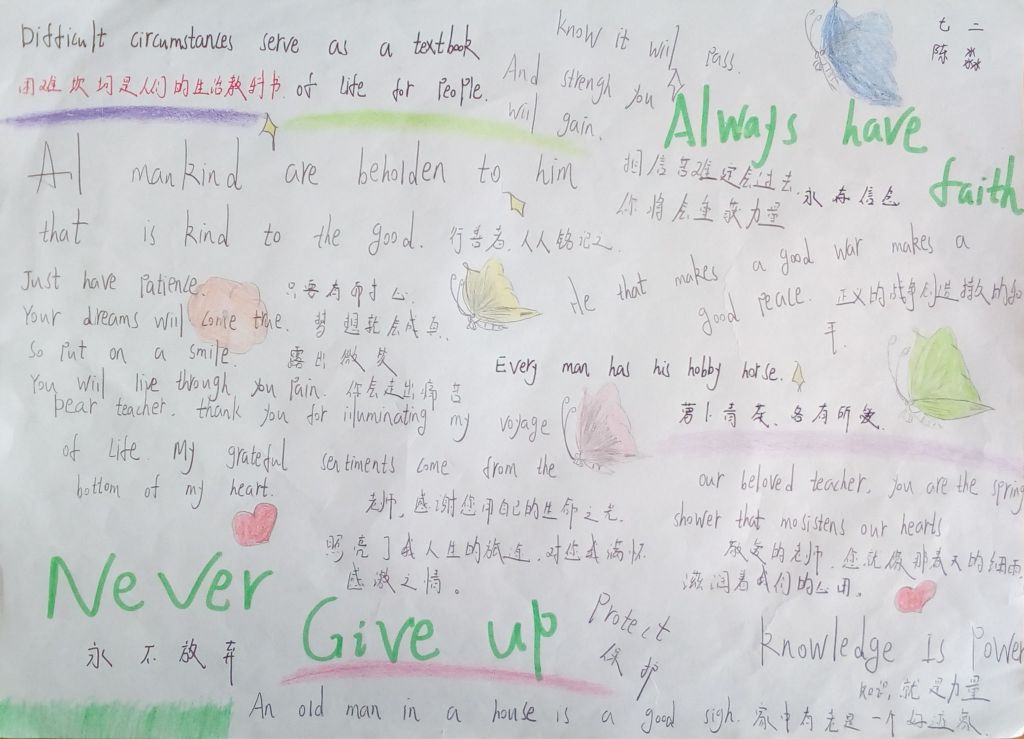 Difficult circumstances serve as a textbook
of life for people.
困难坎坷是人们的生活教科书.
know it will pass.
And strengh you
will gain.
七 二
陈 淼
Always have
faith
相信苦难定会过去,
你将会重获力量
永存信念
All mankind are beholden to him
that is kind to the good. 行善者,人人铭记之.
Just have patience. 只要有耐心
Your dreams will come true. 梦想就会成真.
So put on a smile. 露出微笑
You will live through you pain. 你会走出痛苦
He that makes a good war makes a
good peace. 正义的战争创造持久的和
平.
Every man has his hobby horse.
萝卜青菜,各有所爱.
Dear teacher. thank you for illuminating my voyage
of life. My grateful sentiments come from the
bottom of my heart.
老师,感谢您用自己的生命之光.
照亮了我人生的旅途,对您我满怀
感激之情。
our beloved teacher, you are the spring
shower that mosistens our hearts
敬爱的老师,您就像那春天的细雨,
滋润着我们的心田。
Never
Give up
永 不 放 弃
Protect
保 护
knowledge is Power
就是力量
An old man in a house is a good sigh. 家中有老是一个好迹象.